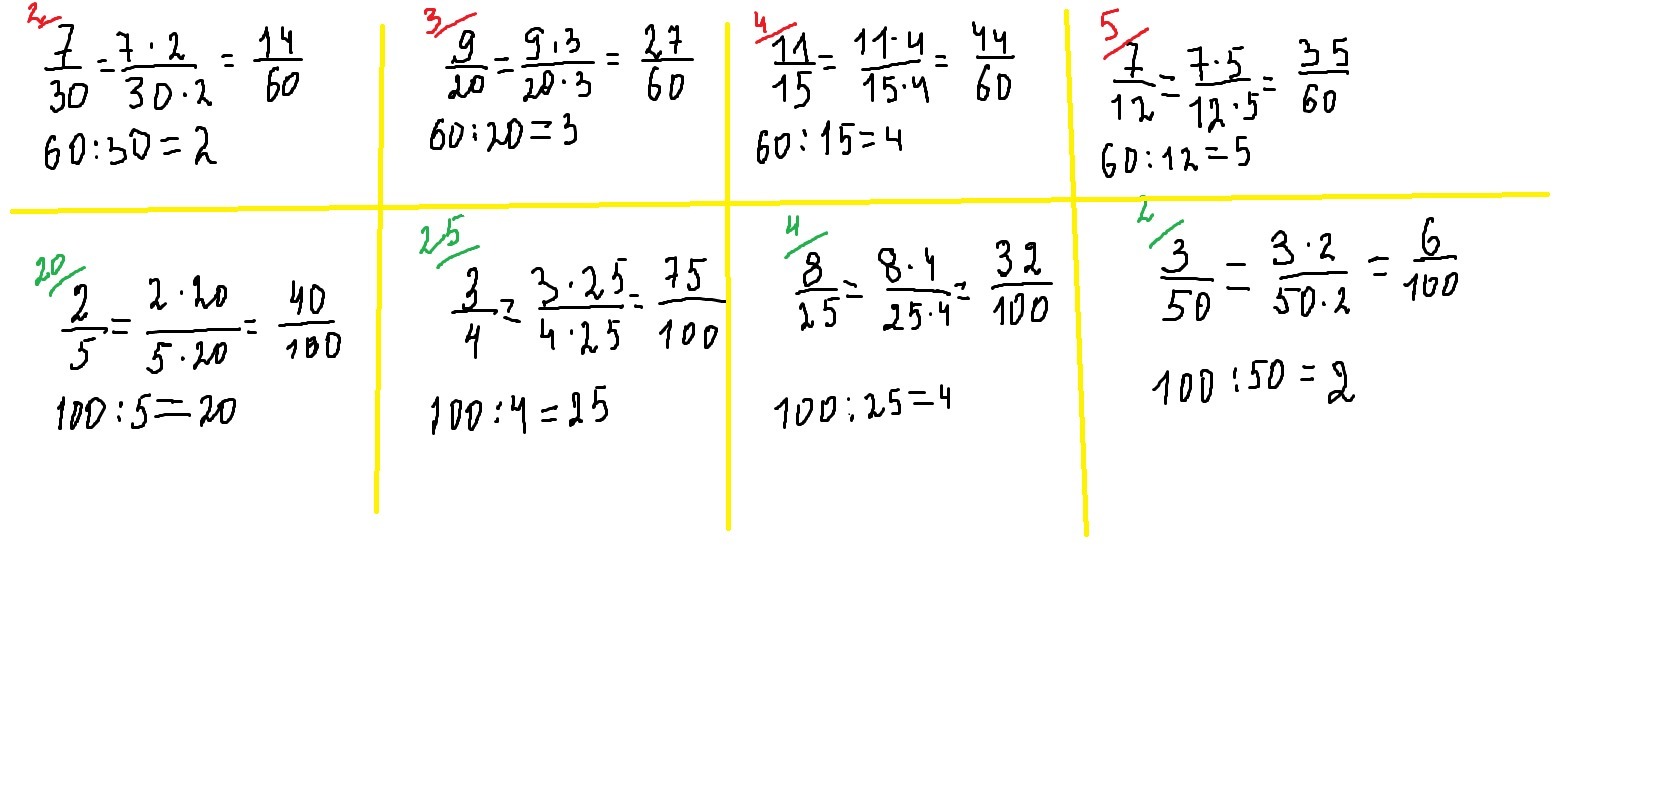 2/ 7/30 = 7·2/30·2 = 14/60
60:30=2
3/ 9/20 = 9·3/20·3 = 27/60
60:20=3
4/ 11/15 = 11·4/15·4 = 44/60
60:15=4
5/ 7/12 = 7·5/12·5 = 35/60
60:12=5
20/ 2/5 = 2·20/5·20 = 40/100
100:5=20
25/ 3/4 = 3·25/4·25 = 75/100
100:4=25
4/ 8/25 = 8·4/25·4 = 32/100
100:25=4
2/ 3/50 = 3·2/50·2 = 6/100
100:50=2